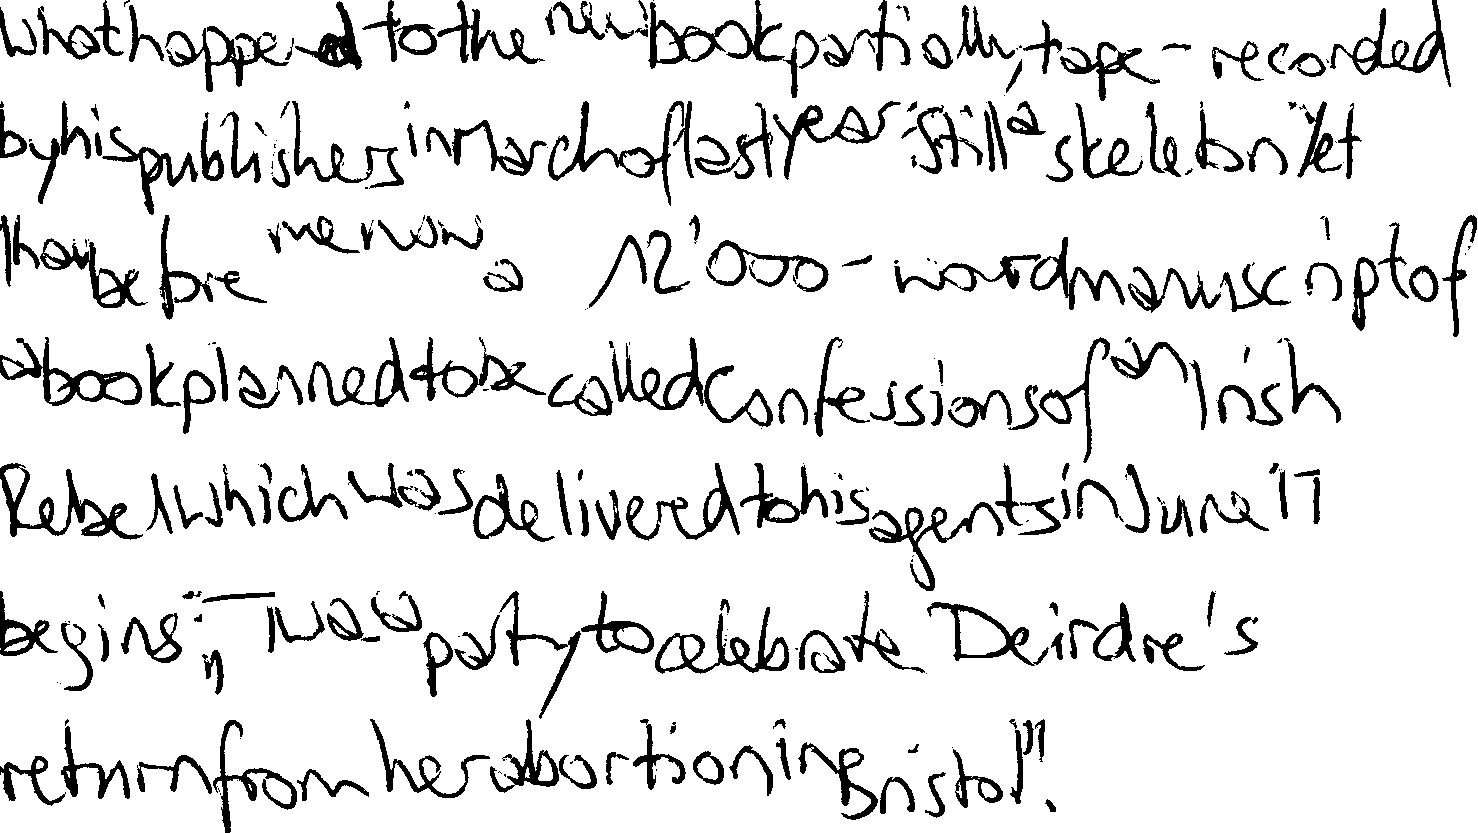 What happened to the new book partially, tape-recorded
by his publishers in March of last year? Still a skeleton? Yet
I have before me now a 12'000-word manuscript of
a book planned to be called Confessions of an Irish
Rebel which was delivered to his agents in June. It
begins: "It was a party to celebrate Deirdre's
return from her abortion in Bristol".